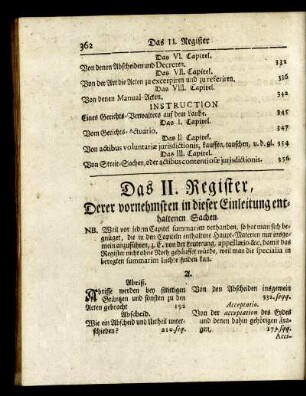 362 Das II. Register
Das VI. Capitel.
Von denen Abschieden und Decreten. 331
Das VII. Capitel.
Von der Art die Acten zu excerpiren und zu referiren. 336
Das VIII. Capitel.
Von denen Manual-Acten. 342
INSTRUCTION
Eines Gerichts-Verwalters auf dem Lande.
Das I. Capitel. 345
Vom Gerichts-Actuario. 347
Das II Capitel.
Von actibus voluntariæ jurisdictionis, kauffen, tauschen, u. d. gl. 354
Das III. Capitel.
Von Streit-Sachen, oder actibus contentiosæ jurisdictionis. 356
Das II. Register,
Derer vornehmsten in dieser Einleitung ent-
haltenen Sachen
NB. Weil vor jedem Capitel summarien vorhanden, so hat man sich be-
gnüget, die in den Capiteln enthaltene Haupt-Materien nur insge-
mein anzuführen, z. E. von der Leuterung, appellatio &c. damit das
Register nicht ohne Noth gehäuffet würde, weil man die specialia in
beregten summarien suchen kan.
A.
Abriß.
Abrisse werden bey strittigen
Gräntzen und sonsten zu den
Acten gebracht 192
Abscheid.
Wie ein Abscheid und Urtheil unter-
schieden? 212. seq.
Von den Abscheiden insgemein
331. seqq.
Acceptatio.
Von der acceptation des Eydes
und denen dahin gehörigen Fra-
gen, 274. seqq.
Acce-